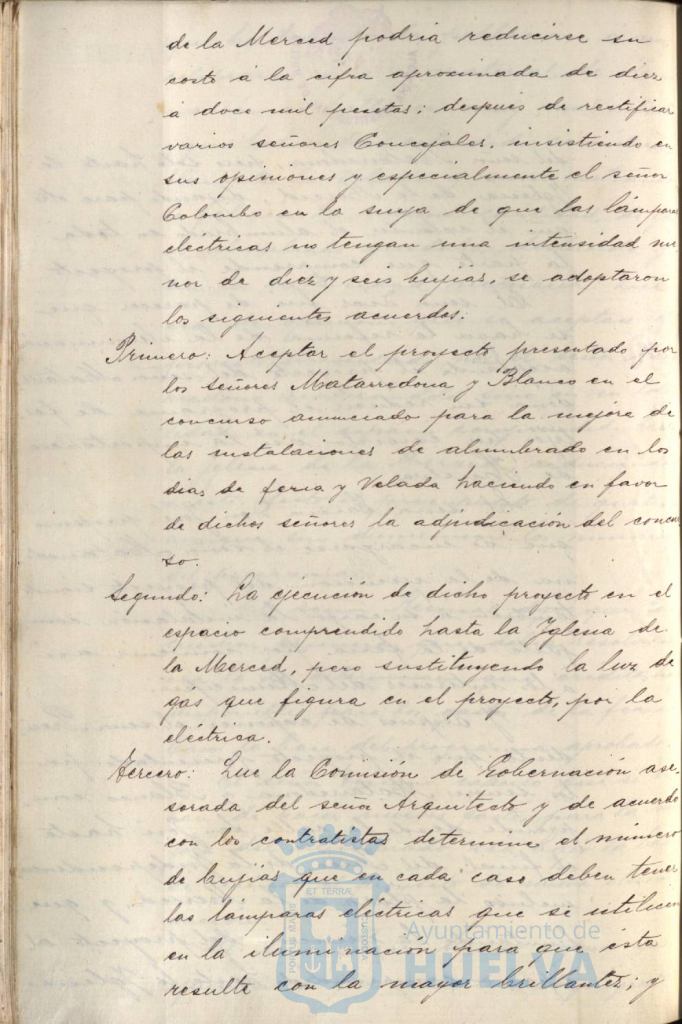 de la Merced podria reducirse su
costo á la cifra aproximada de diez
á doce mil pesetas; después de rectificar
varios señores Concejales, insistiendo en
sus opiniones y especialmente el señor
Colombo en la suya de que las lámparas
eléctricas no tengan una intensidad me
nor de diez y seis bujias, se adoptaron
los siguientes acuerdos:
Primero: Aceptar el proyecto presentado por
los señores Matarredona y Blanco en el
concurso anunciado para la mejora de
las instalaciones de alumbrado en los
dias de feria y Velada haciendo en favor
de dichos señores la adjudicación del concur
so.
Segundo: La ejecución de dicho proyecto en el
espacio comprendido hasta la Iglesia de
la Merced, pero sustituyendo la luz de
gás que figura en el proyecto, por la
eléctrica.
Tercero: Que la Comisión de Gobernación ase-
sorada del señor Arquitecto y de acuerdo
con los contratistas determine el número
de bujias que en cada caso deben tener
las lámparas eléctricas que se utilicen
en la iluminación para que ésta
resulte con la mayor brillantez; y
ET TERRÆ
Ayuntamiento de
HUELVA